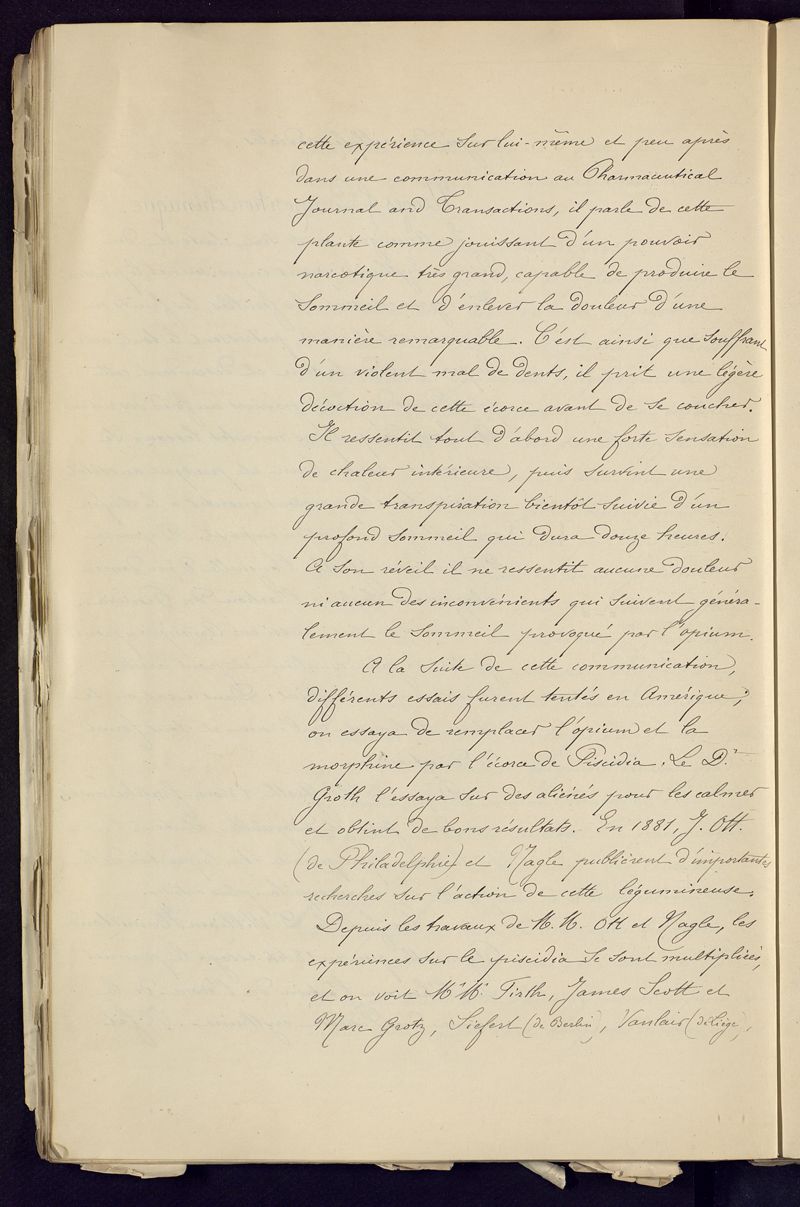 cette expérience sur lui-même et peu après
dans une communication au Pharmaceutical
Journal and Transactions, il parle de cette
plante comme jouissant d'un pouvoir
narcotique très grand, capable de produire le
sommeil et d'enlever la douleur d'une
manière remarquable. C'est ainsi que souffrant
d'un violent mal de dents, il prit une légère
décoction de cette écorce avant de se coucher.
Il ressentit tout d'abord une forte sensation
de chaleur intérieure, puis survint une
grande transpiration bientôt suivie d'un
profond sommeil qui dura douze heures.
A son réveil il ne ressentit aucune douleur
ni aucun des inconvénients qui suivent généra-
lement le sommeil provoqué par l'opium.
A la suite de cette communication,
différents essais furent tentés en Amérique;
on essaya de remplacer l'opium et la
morphine par l'écorce de Piscidia. Le Dr
Groth l'essaya sur des aliénés pour les calmer
et obtint de bons résultats. En 1881, J. Ott.
(de Philadelphie) et Nagle publièrent d'importantes
recherches sur l'action de cette légumineuse.
Depuis les travaux de M.M. Ott et Nagle, les
expériences sur le piscidia se sont multipliées,
et on voit M.M. Firth, James Scott et
Marc Grotz, Siefert (de Berlin), Vanlair (de Liège),